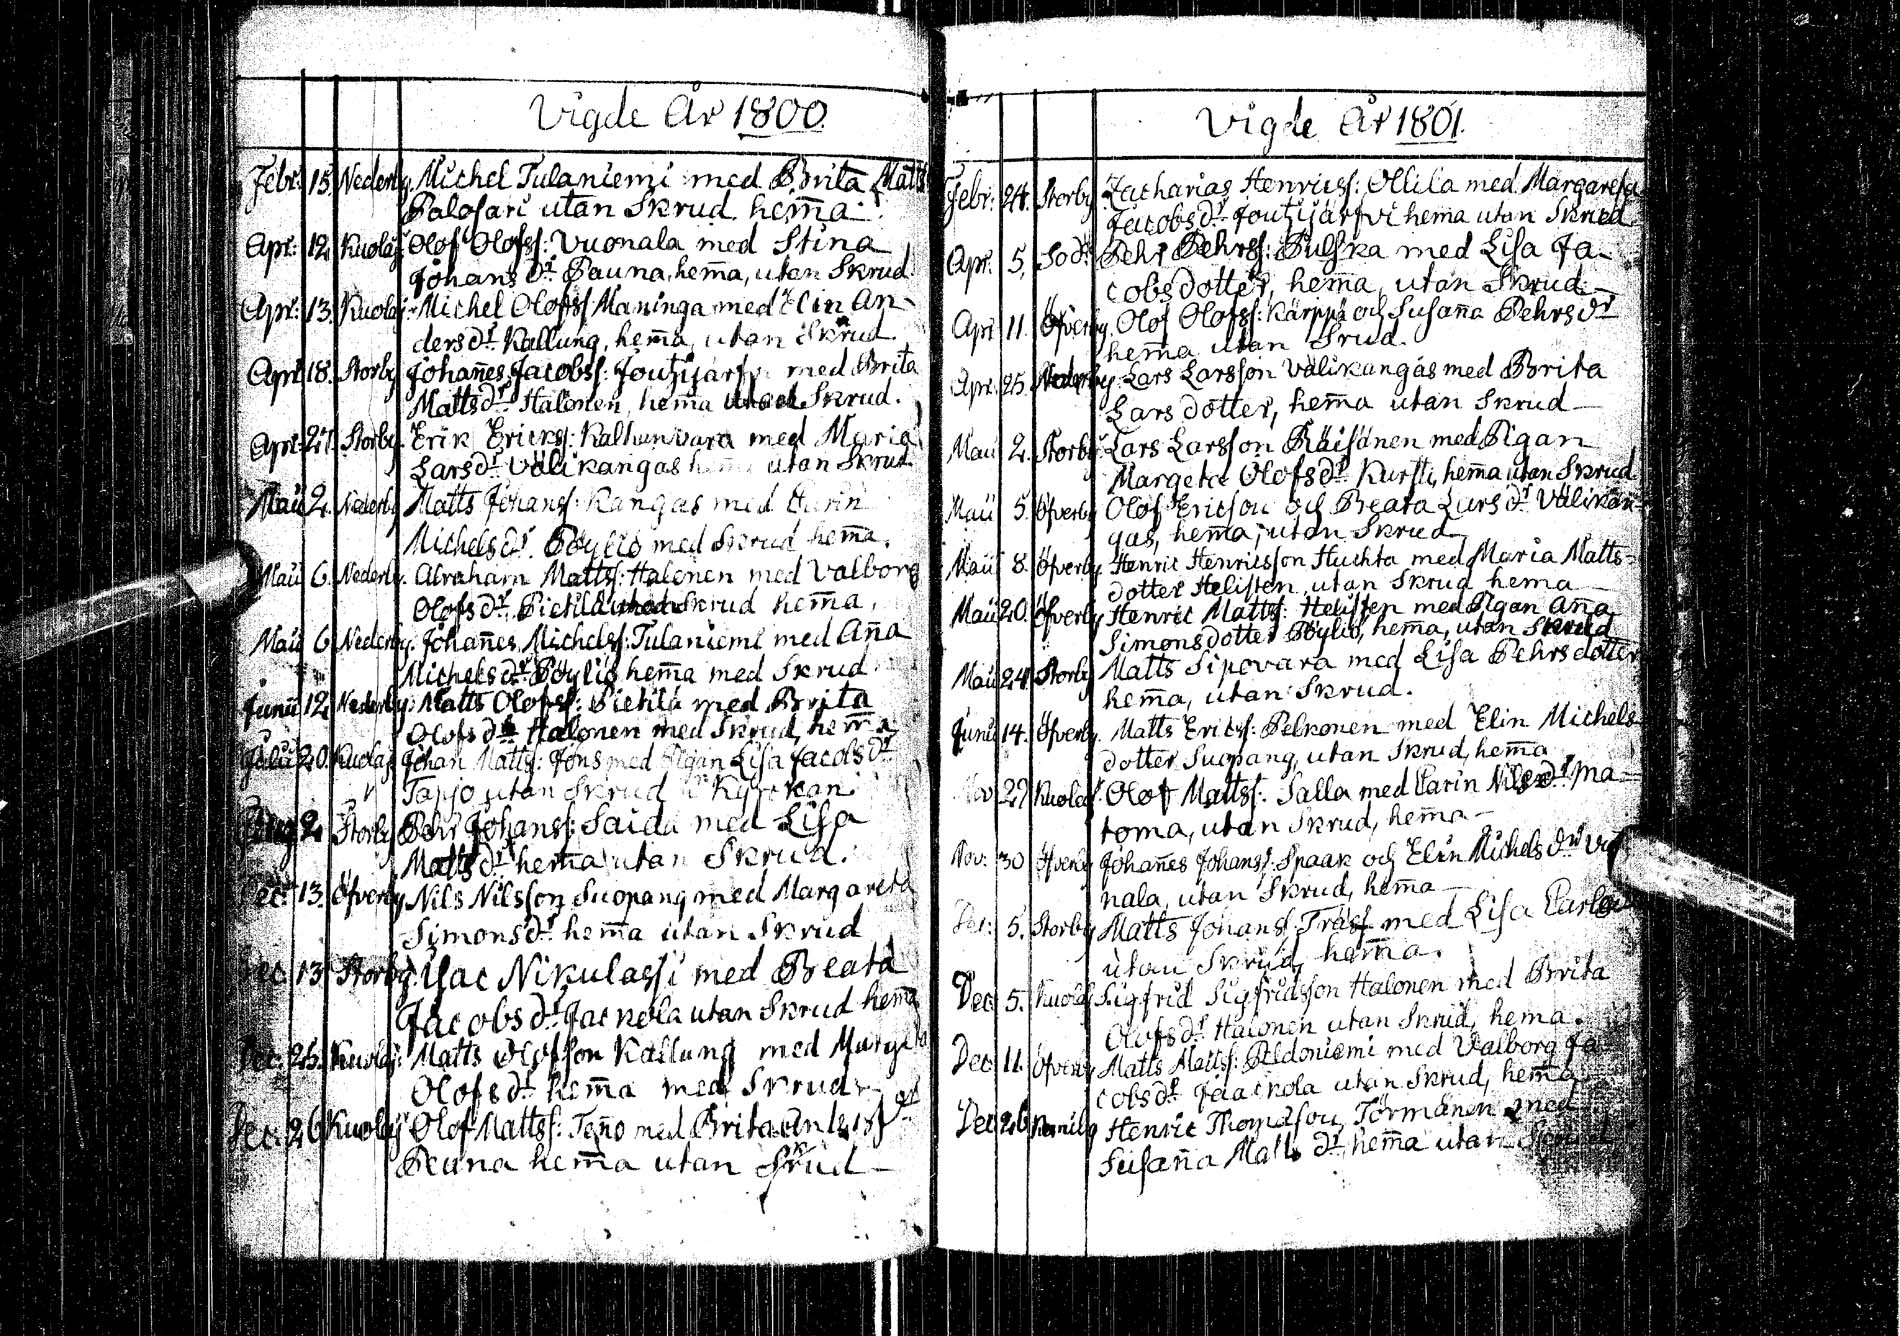 Vigde År 1800.
Febr: 15. Nederby. Michel Tulaniemi med Brita Matts
Palosari utan Skrud hem̄a
Apr: 12. Kuolaj: Olof Olofss: Vuonala med Stina
Johans dr. Pauna, hem̄a, utan Skrud.
Apr: 13. Kuolaj: Michel Olofss: Maninga med Elin An-
ders dr. Kallung, hem̄a, utan Skrud
Apr: 18. Storby Johan̄es Jacobss: Joutzijärfvi med Brita
Matts dr. Halonen, hem̄a utan Skrud.
Apr: 27. Storby. Erik Ericks: med Maria
Lars dr. Välikangas hem̄a utan Skrud
Maii 2. Nederby Matts Johanss: Kangas med Carin
Michels dr. Pöyliö med Skrud hem̄a.
Maii 6. Nederby. Abraham Mattss: Halonen med Valborg
Olofs dr. Pietilä Skrud hem̄a.
Maii 6. Nederby. Johan̄es Michelss: Tulaniemi med An̄a
Michels dr. Pöyliö hem̄a med Skrud
Junii 12. Nederby: Matts Olofss: Pietilä med Brita
Olofs dr. Halonen med Skrud, hem̄a
Julii 20. Kuolaj Johan Mattss: Jons med Pigan Lisa Jacobs dr
Tapjo utan Skrud i Kyrckan
2. Storby Pehr Johanss: Saida med Lisa
Matts dr. hem̄a utan Skrud.
Dec: 13. Öfverby Nils Nilsson Suopang med Margareta
Simons dr. hem̄a utan Skrud
Dec: 13. Storby. Isac Nikulassi med Beata
Jacobs dr. Jackola utan Skrud hem̄a
Dec: 26. Kuolaj: Matts Olofsson Kallung med Margeta
Olofs dr. hem̄a med Skrud
Dec: 26 Kuolaj Olof Mattss: Ten̄o med Brita Anders dr
Peuna hem̄a utan Skrud
Vigde År 1801.
Febr: 24. Storby. Zacharias Henricss: Ollila med Margareta
Jacobs dr. Joutzijärfvi hem̄a utan Skrud
Apr: 5. Sod: Pehr Pehrss: Pulska med Lisa Ja-
cobs dotter, hem̄a, utan Skrud.
Apr 11. Öfverby. Olof Olofss: Kärppä och Susan̄a Pehrs dr
hem̄a utan Srud.
Apr. 25. Nederby. Lars Larsson Välikangas med Brita
Lars dotter, hem̄a utan Skrud
Maii 2. Storby. Lars Larsson Räisänen med Pigan
Margeta Olofs dr. Kursti, hem̄a, utan Skrud
Maii 5. Öfverby Olof Ericson och Beata Lars dr. Välikan-
gas, hem̄a, utan Skrud
Maii 8. Öfverby Henric Henricsson Huchta med Maria Matts-
dotter Helisten, utan Skrud hem̄a
Maii 20. Öfverby Henric Mattss: Helisten med Pigan An̄a
Simons dotter Pöyliö, hem̄a, utan Skrud
Maii 24. Storby Matts Sipovara med Lisa Pehrs dotter
hem̄a, utan Skrud.
Junii 14. Öfverby. Matts Ericss: Pelkonen med Elin Michels
dotter Suopang, utan Skrud, hem̄a
Nov 27 Kuolaj. Olof Mattss: Salla med Carin Nils dr. Ma-
toma, utan Skrud, hem̄a
Nov: 30 Öfverby Johan̄es Johanss: Spaak och Elin Michels dr.
nala, utan Skrud, hem̄a
Dec: 5. Storby Matts Johanss Träsk med Lisa
utan Skrud, hem̄a.
Dec 5. Kuolaj Sigfrid Sigfridsson Halonen med Brita
Olofs dr. Halonen utan Skrud, hem̄a.
Dec 11. Öfverby Matts Mattss: Peldoniemi med Valborg Ja-
cobs dr. Jaackola utan Skrud, hem̄a
Dec 26 Henric Thomasson Törmänen med
Susan̄a Matts dr. hem̄a utan Skrud